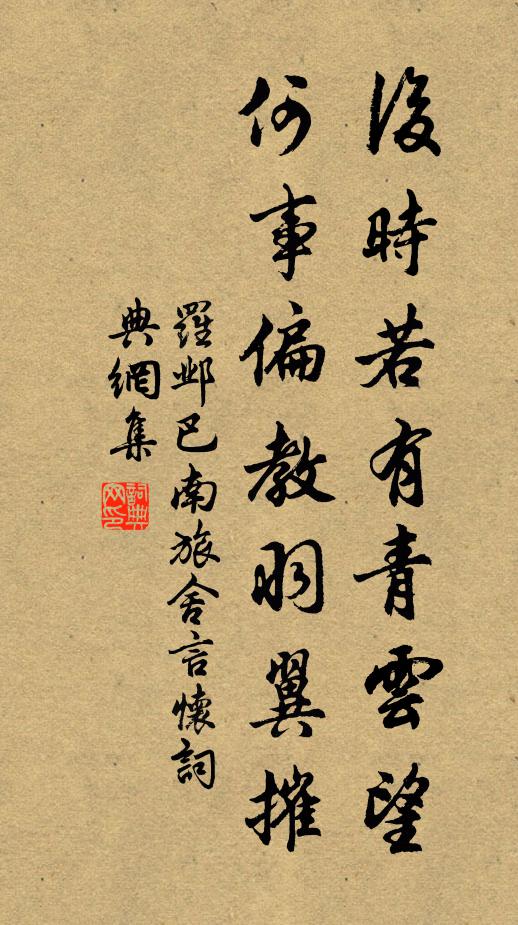 後時若有青雲望
何事偏教羽翼摧
羅鄴巴南旅舍言懷詞
典網集
詞典
网印